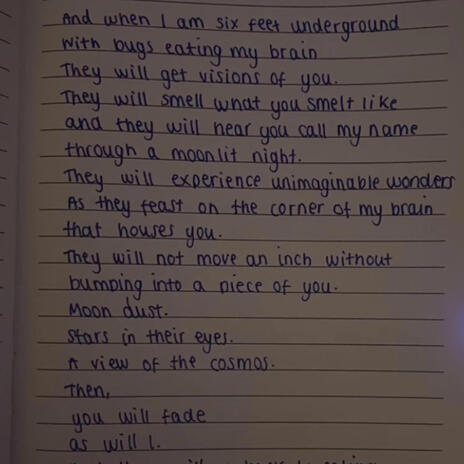 And when I am six feet underground
With bugs eating my brain
They will get visions of you.
They will smell what you smelt like
and they will hear you call my name
through a moonlit night.
They will experience unimaginable wonders
As they feast on the corner of my brain
that houses you.
They will not move an inch without
bumping into a piece of you.
Moon dust.
Stars in their eyes.
A view of the cosmos.
Then,
you will fade
as will I.